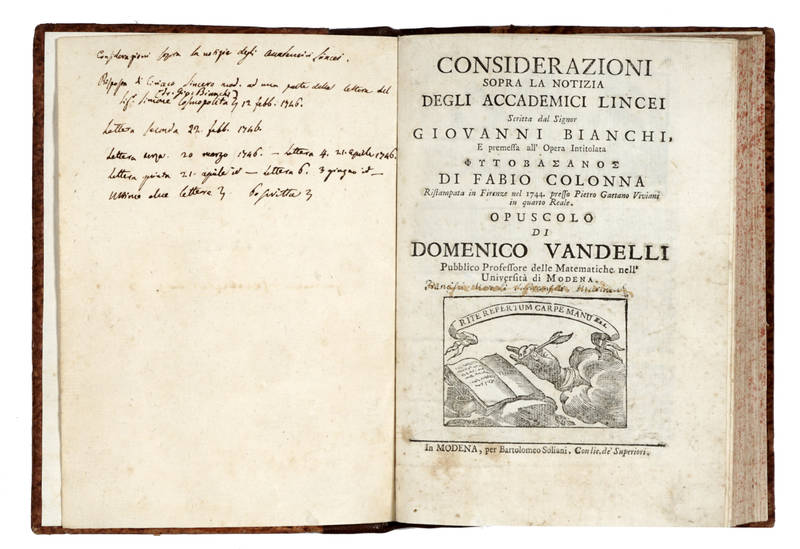 Considerazioni sopra la notizia degli Accademici Lincei.
Risposta di Ciriaco Sincero mod. ad una parte della lettera del
Sig. Simone Cosmopolita 12 febb. 1746.
Lettera seconda 22. febb. 1746.
Lettera terza. 20 marzo 1746. — Lettera 4. 21. aprile 1746.
Lettera quinta 21. aprile id — Lettera 6. 3 giugno id —
Ultime due lettere
CONSIDERAZIONI
SOPRA LA NOTIZIA
DEGLI ACCADEMICI LINCEI
Scritta dal Signor
GIOVANNI BIANCHI,
E premessa all' Opera Intitolata
ΦΥΤΟΒΑΣΑΝΟΣ
DI FABIO COLONNA
Ristampata in Firenze nel 1744. presso Pietro Gaetano Viviani
in quarto Reale.
OPUSCOLO
DI
DOMENICO VANDELLI
Pubblico Professore delle Matematiche nell'
Università di MODENA.
RITE REPERTUM CARPE MANU
In MODENA, per Bartolomeo Soliani. Con lic. de' Superiori.